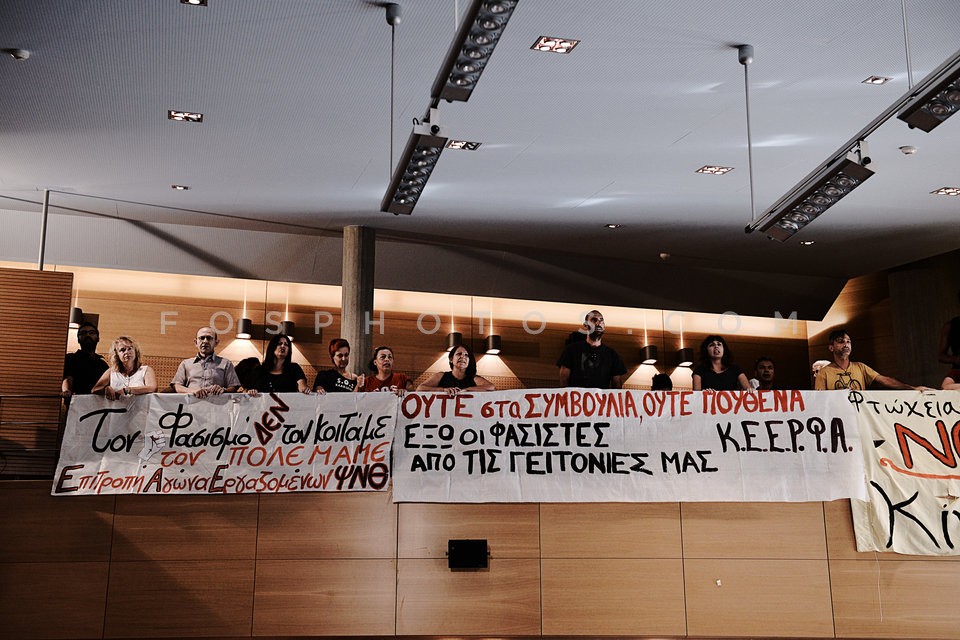 Τον Φασισμό ΔΕΝ τον Κοιτάμε
τον ΠΟΛΕΜΑΜΕ
Επιτροπή Αγωνα Εργαζομένων ΨΝΘ
ΟΥΤΕ στα ΣΥΜΒΟΥΛΙΑ, ΟΥΤΕ ΠΟΥΘΕΝΑ
ΕΞΩ ΟΙ ΦΑΣΙΣΤΕΣ
ΑΠΟ ΤΙΣ ΓΕΙΤΟΝΙΕΣ ΜΑΣ
Κ.Ε.Ε.Ρ.Φ.Α.
Φτώχεια
FOSPHOTOS.COM